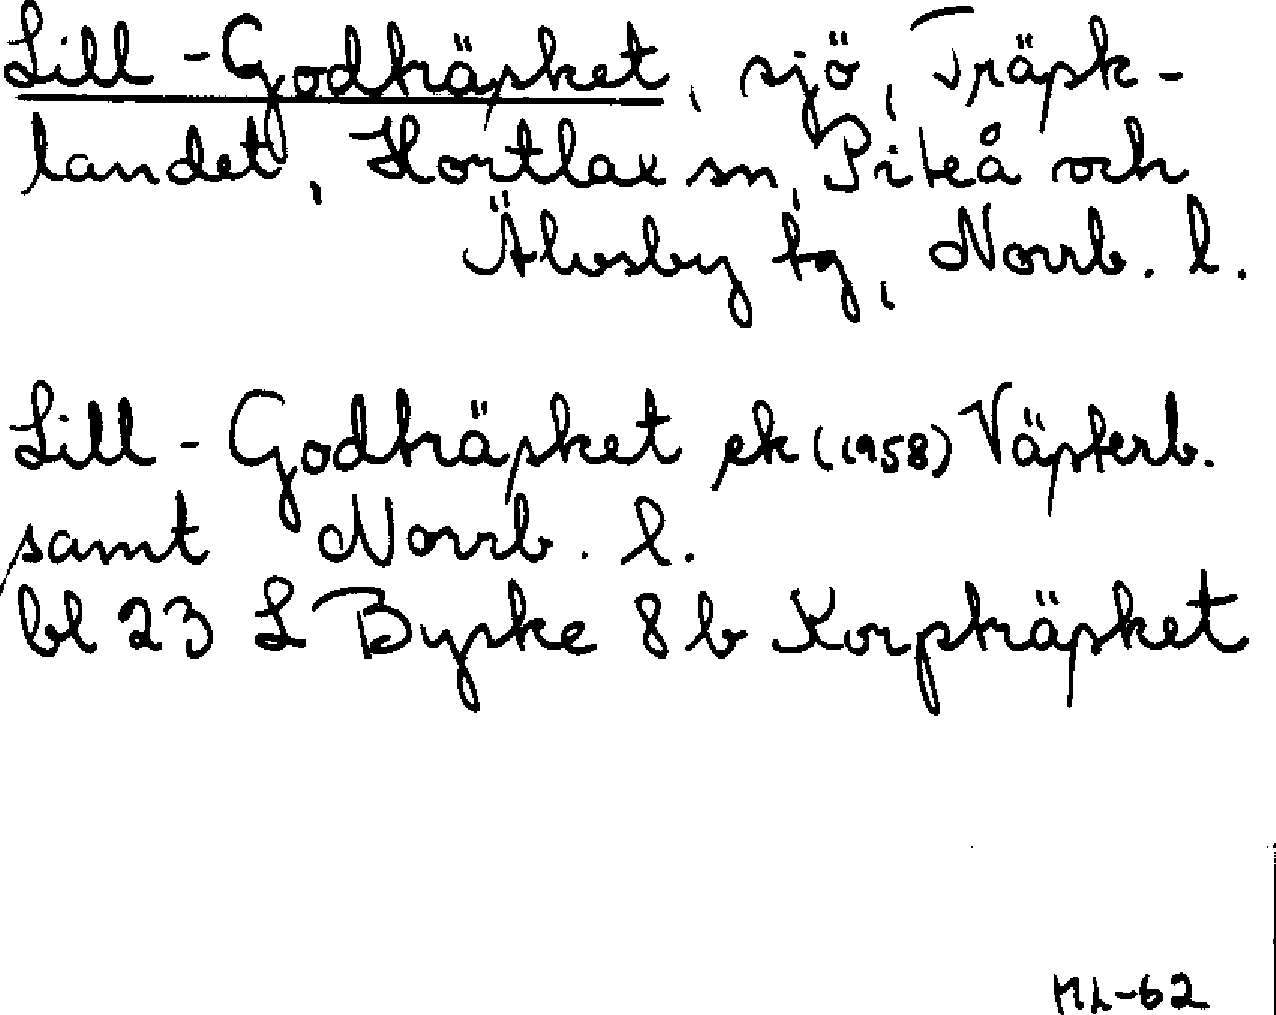 Lill-Godträsket, sjö, Träsk-
landet, Hortlax sn, Piteå och
Älvsby tg, Norrb. l.
Lill-Godträsket ek (1958) Västerb.
samt Norrb. l.
bl 23 L Byske 8 b Korpträsket
ML-62